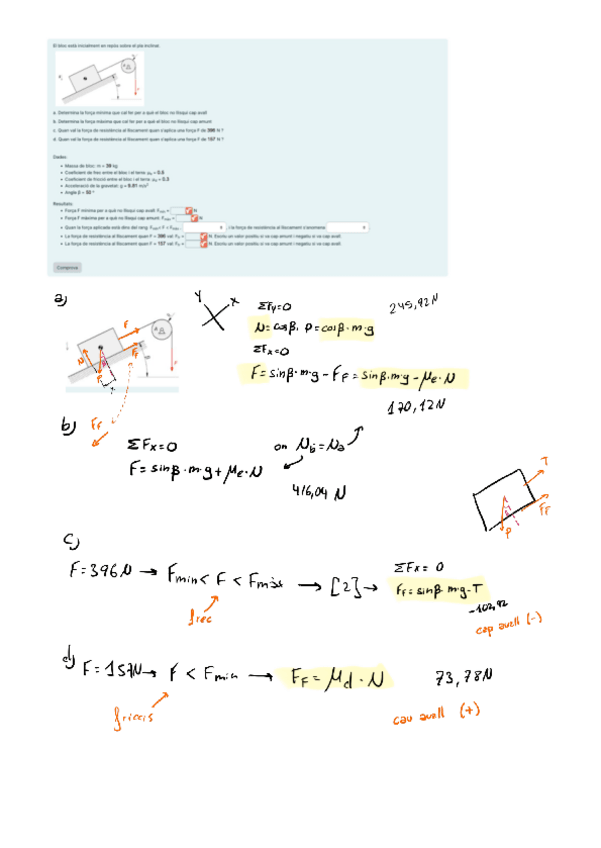 El bloc està inicialment en repòs sobre el pla inclinat.
a. Determina la força mínima que cal fer per a què el bloc no llisqui cap avall
b. Determina la força màxima que cal fer per a què el bloc no llisqui cap amunt
c. Quan val la força de resistència al lliscament quan s'aplica una força F de 396 N ?
d. Quan val la força de resistència al lliscament quan s'aplica una força F de 157 N ?
Dades.
Massa de bloc: m = 39 kg
Coeficient de frec entre el bloc i el terra: μe = 0.5
Coeficient de fricció entre el bloc i el terra: μd = 0.3
Acceleració de la gravetat: g = 9.81 m/s²
Angle β = 50 °
Resultats.
Força F mínima per a què no llisqui cap avall: Fmín = N
Força F màxima per a què no llisqui cap amunt: Fmàx = N
Quan la força aplicada està dins del rang: Fmín< F < Fmàx : , i la força de resistència al lliscament s'anomena:
La força de resistència al lliscament quan F = 396 val: FF = N. Escriu un valor positiu si va cap amunt i negatiu si va cap avall
La força de resistència al lliscament quan F = 157 val: FF = N. Escriu un valor positiu si va cap amunt i negatiu si va cap avall
Comprova
a)
Y X
ΣFy=0
245,92N
N= cosβ. P = cosβ·m·g
ΣFx=0
F= sinβ·m·g - FF = sinβ·m·g - μe·N
170,12N
F
FF
N
P
b)
FF
ΣFx=0
on Nb=Na
F= sinβ·m·g + μe·N
416,04 N
T
FF
P
c)
F=396N → Fmin< F < Fmàx → [2] →
ΣFx= 0
FF = sinβ·m·g-T
frec
-102,92
cap avall (-)
d)
F=157N → F < Fmin → FF = μd · N
73,78N
fricció
cau avall (+)